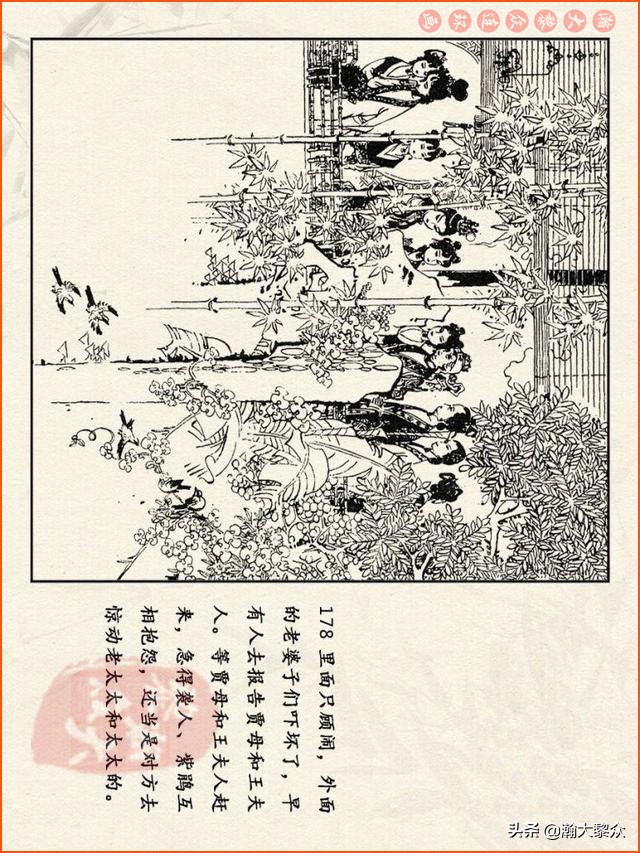 瀚大黎众连环画
178 里面只顾闹，外面
的老婆子们吓坏了，早
有人去报告贾母和王夫
人。等贾母和王夫人赶
来，急得袭人、紫鹃互
相抱怨，还当是对方去
惊动老太太和太太的。
头条 @瀚大黎众